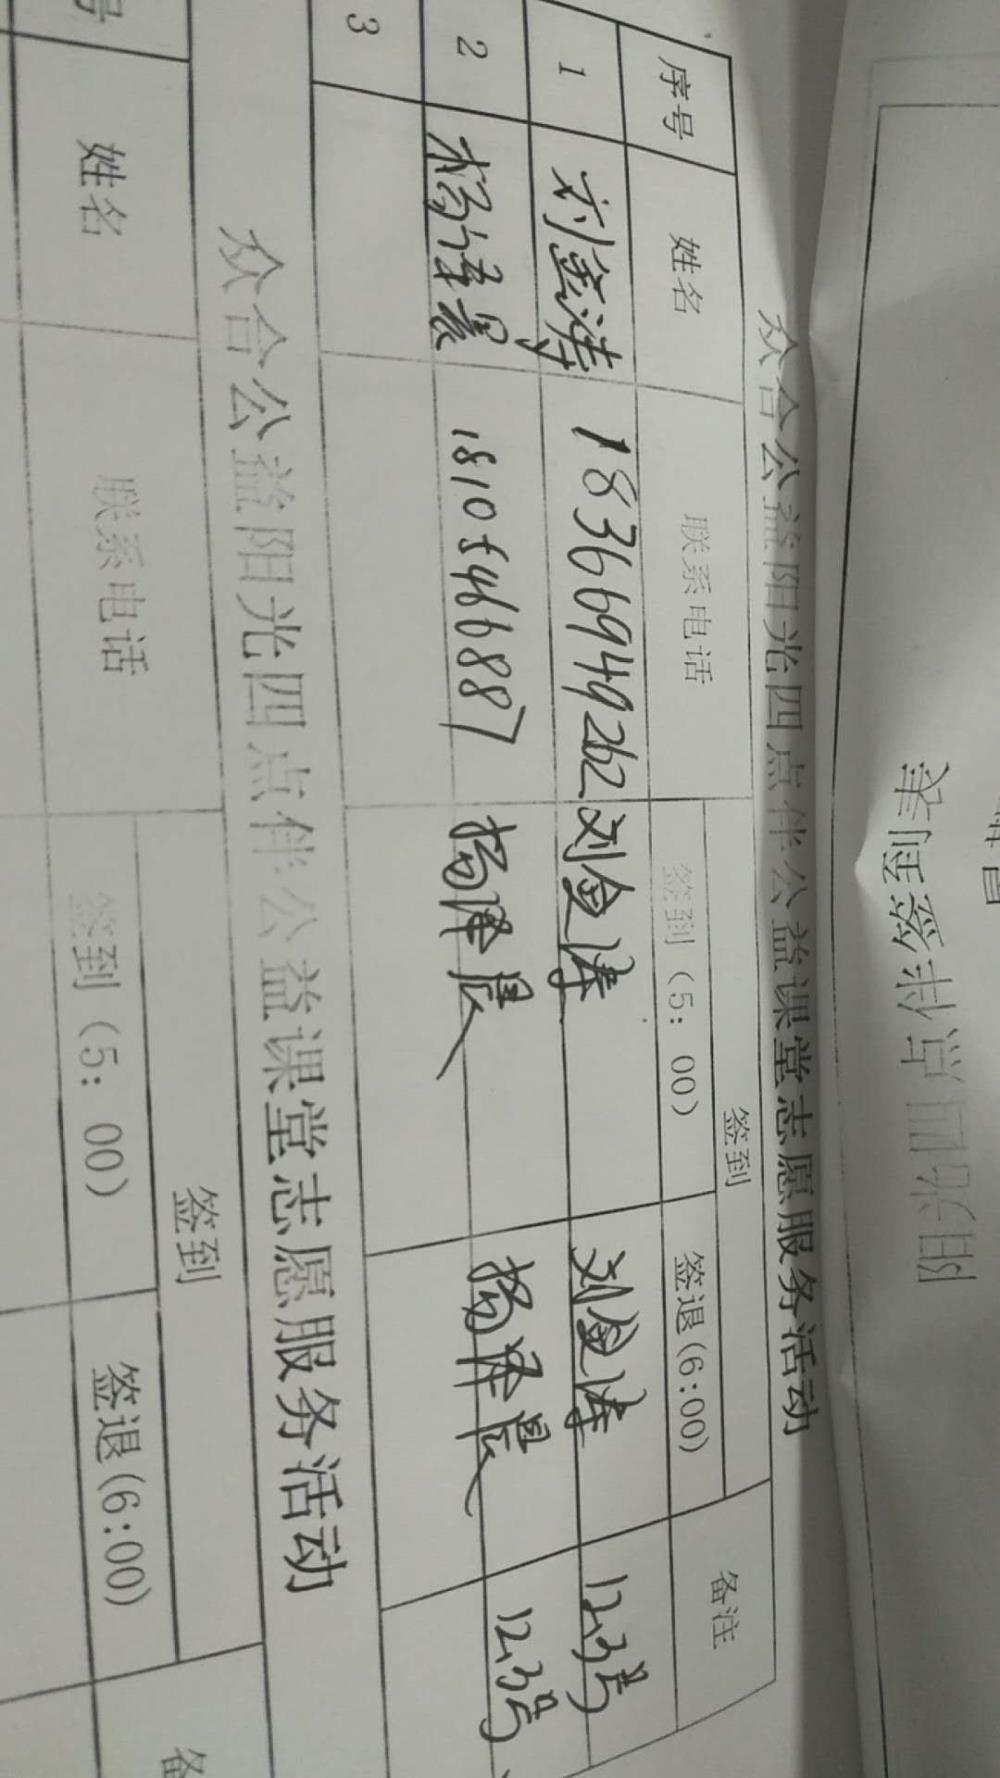 阳光四点伴签到表
众合公益阳光四点伴公益课堂志愿服务活动
序号 姓名 联系电话 签到 备注
签到（5：00） 签退(6:00)
1 刘金涛 18366949262 刘金涛 刘金涛 12.3号
2 杨泽晨 18105466887 杨泽晨 杨泽晨 12.3号
3
众合公益阳光四点伴公益课堂志愿服务活动
号 姓名 联系电话 签到 备
签到（5：00） 签退(6:00)